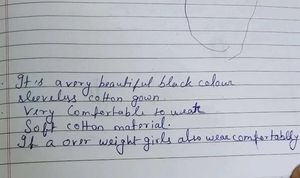 It is a very beautiful black colour
sleeveless cotton gown
Very Comfortable to weat
Soft cotton material.
If a over weight girls also wear comfortablly